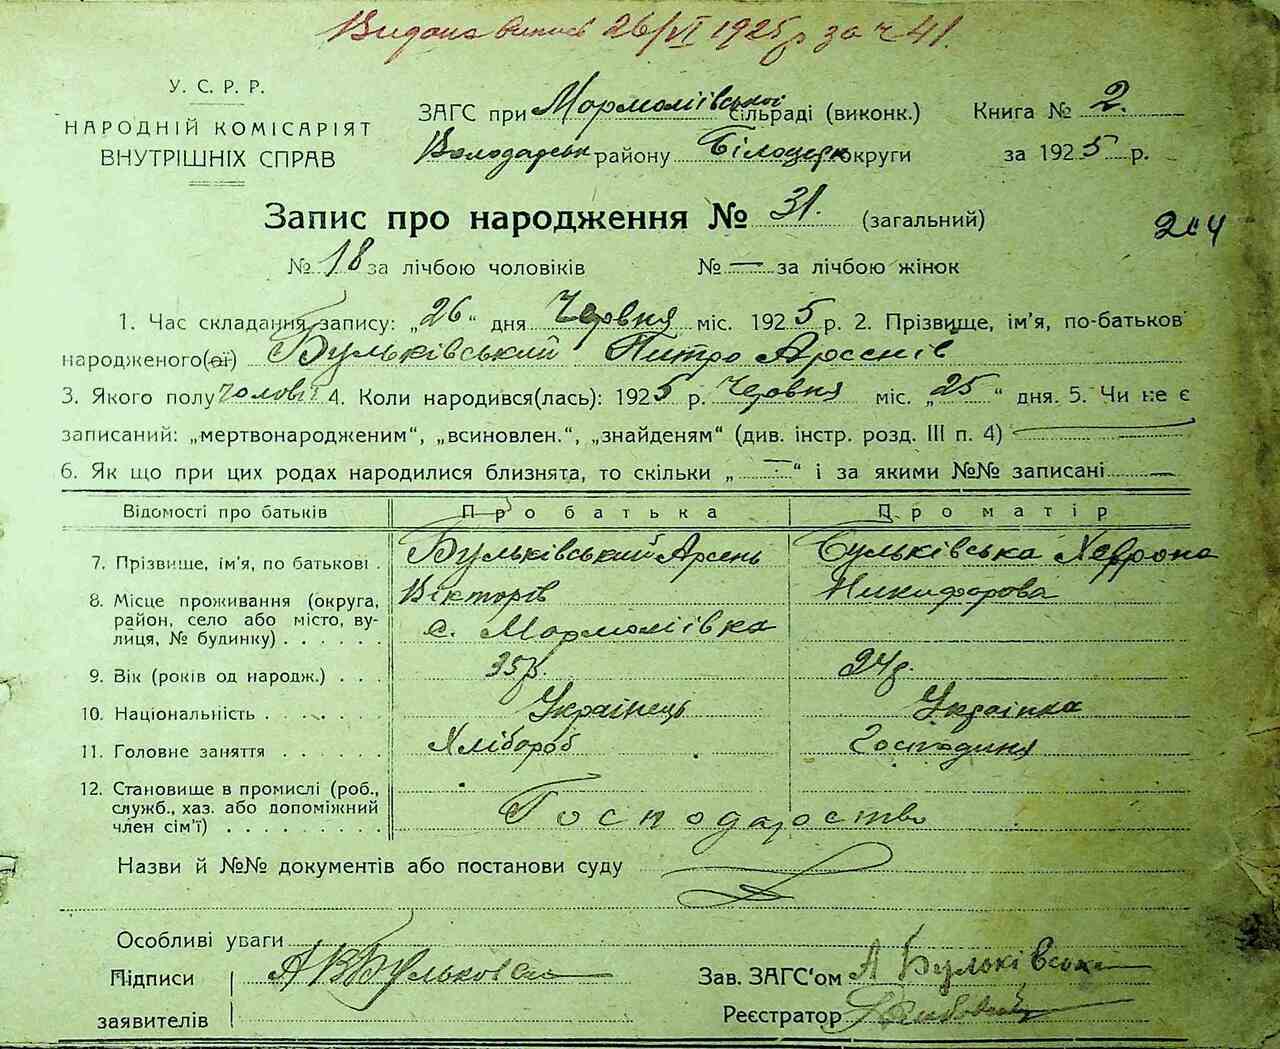 Видана випись 26/VI 1925 р за ч 41.
У. С. Р. Р.
НАРОДНІЙ КОМІСАРІЯТ
ВНУТРІШНІХ СПРАВ
ЗАГС при Мормоліївської сільраді (виконк.) Книга № 2.
Володарськ району Білоцерк округи за 1925 р.
Запис про народження № 31. (загальний)
204
№ 18 за лічбою чоловіків № — за лічбою жінок
1. Час складання запису: „26“ дня Червня міс. 1925 р. 2. Прізвище, ім'я, по-батьков
народженого(ої) Бульківський Питро Арсєнів
3. Якого полу чолові 4. Коли народився(лась): 1925 р. Червня міс. „25“ дня. 5. Чи не є
записаний: „мертвонародженим“, „всиновлен.“, „знайденям“ (див. інстр. розд. III п. 4) —
6. Як що при цих родах народилися близнята, то скільки „—“ і за якими №№ записані —
Відомості про батьків Про батька Про матір
7. Прізвище, ім'я, по батькові . Бульківський Арсень Бульківська Хеврона
Вікторів Никифорова
8. Місце проживання (округа, район, село або місто, ву-
лиця, № будинку) . . . . . с. Мормоліївка
9. Вік (років од народж.) . . . 35р. 24р.
10. Національність . . . . . . Українець Українка
11. Головне заняття . . . . . Хлібороб Господиня
12. Становище в промислі (роб.,
служб., хаз. або допоміжний
член сім'ї) . . . . . . . . Господарство
Назви й №№ документів або постанови суду
Особливі уваги
Підписи А В Бульковс Зав. ЗАГС'ом А Бульківськ
заявителів Реєстратор